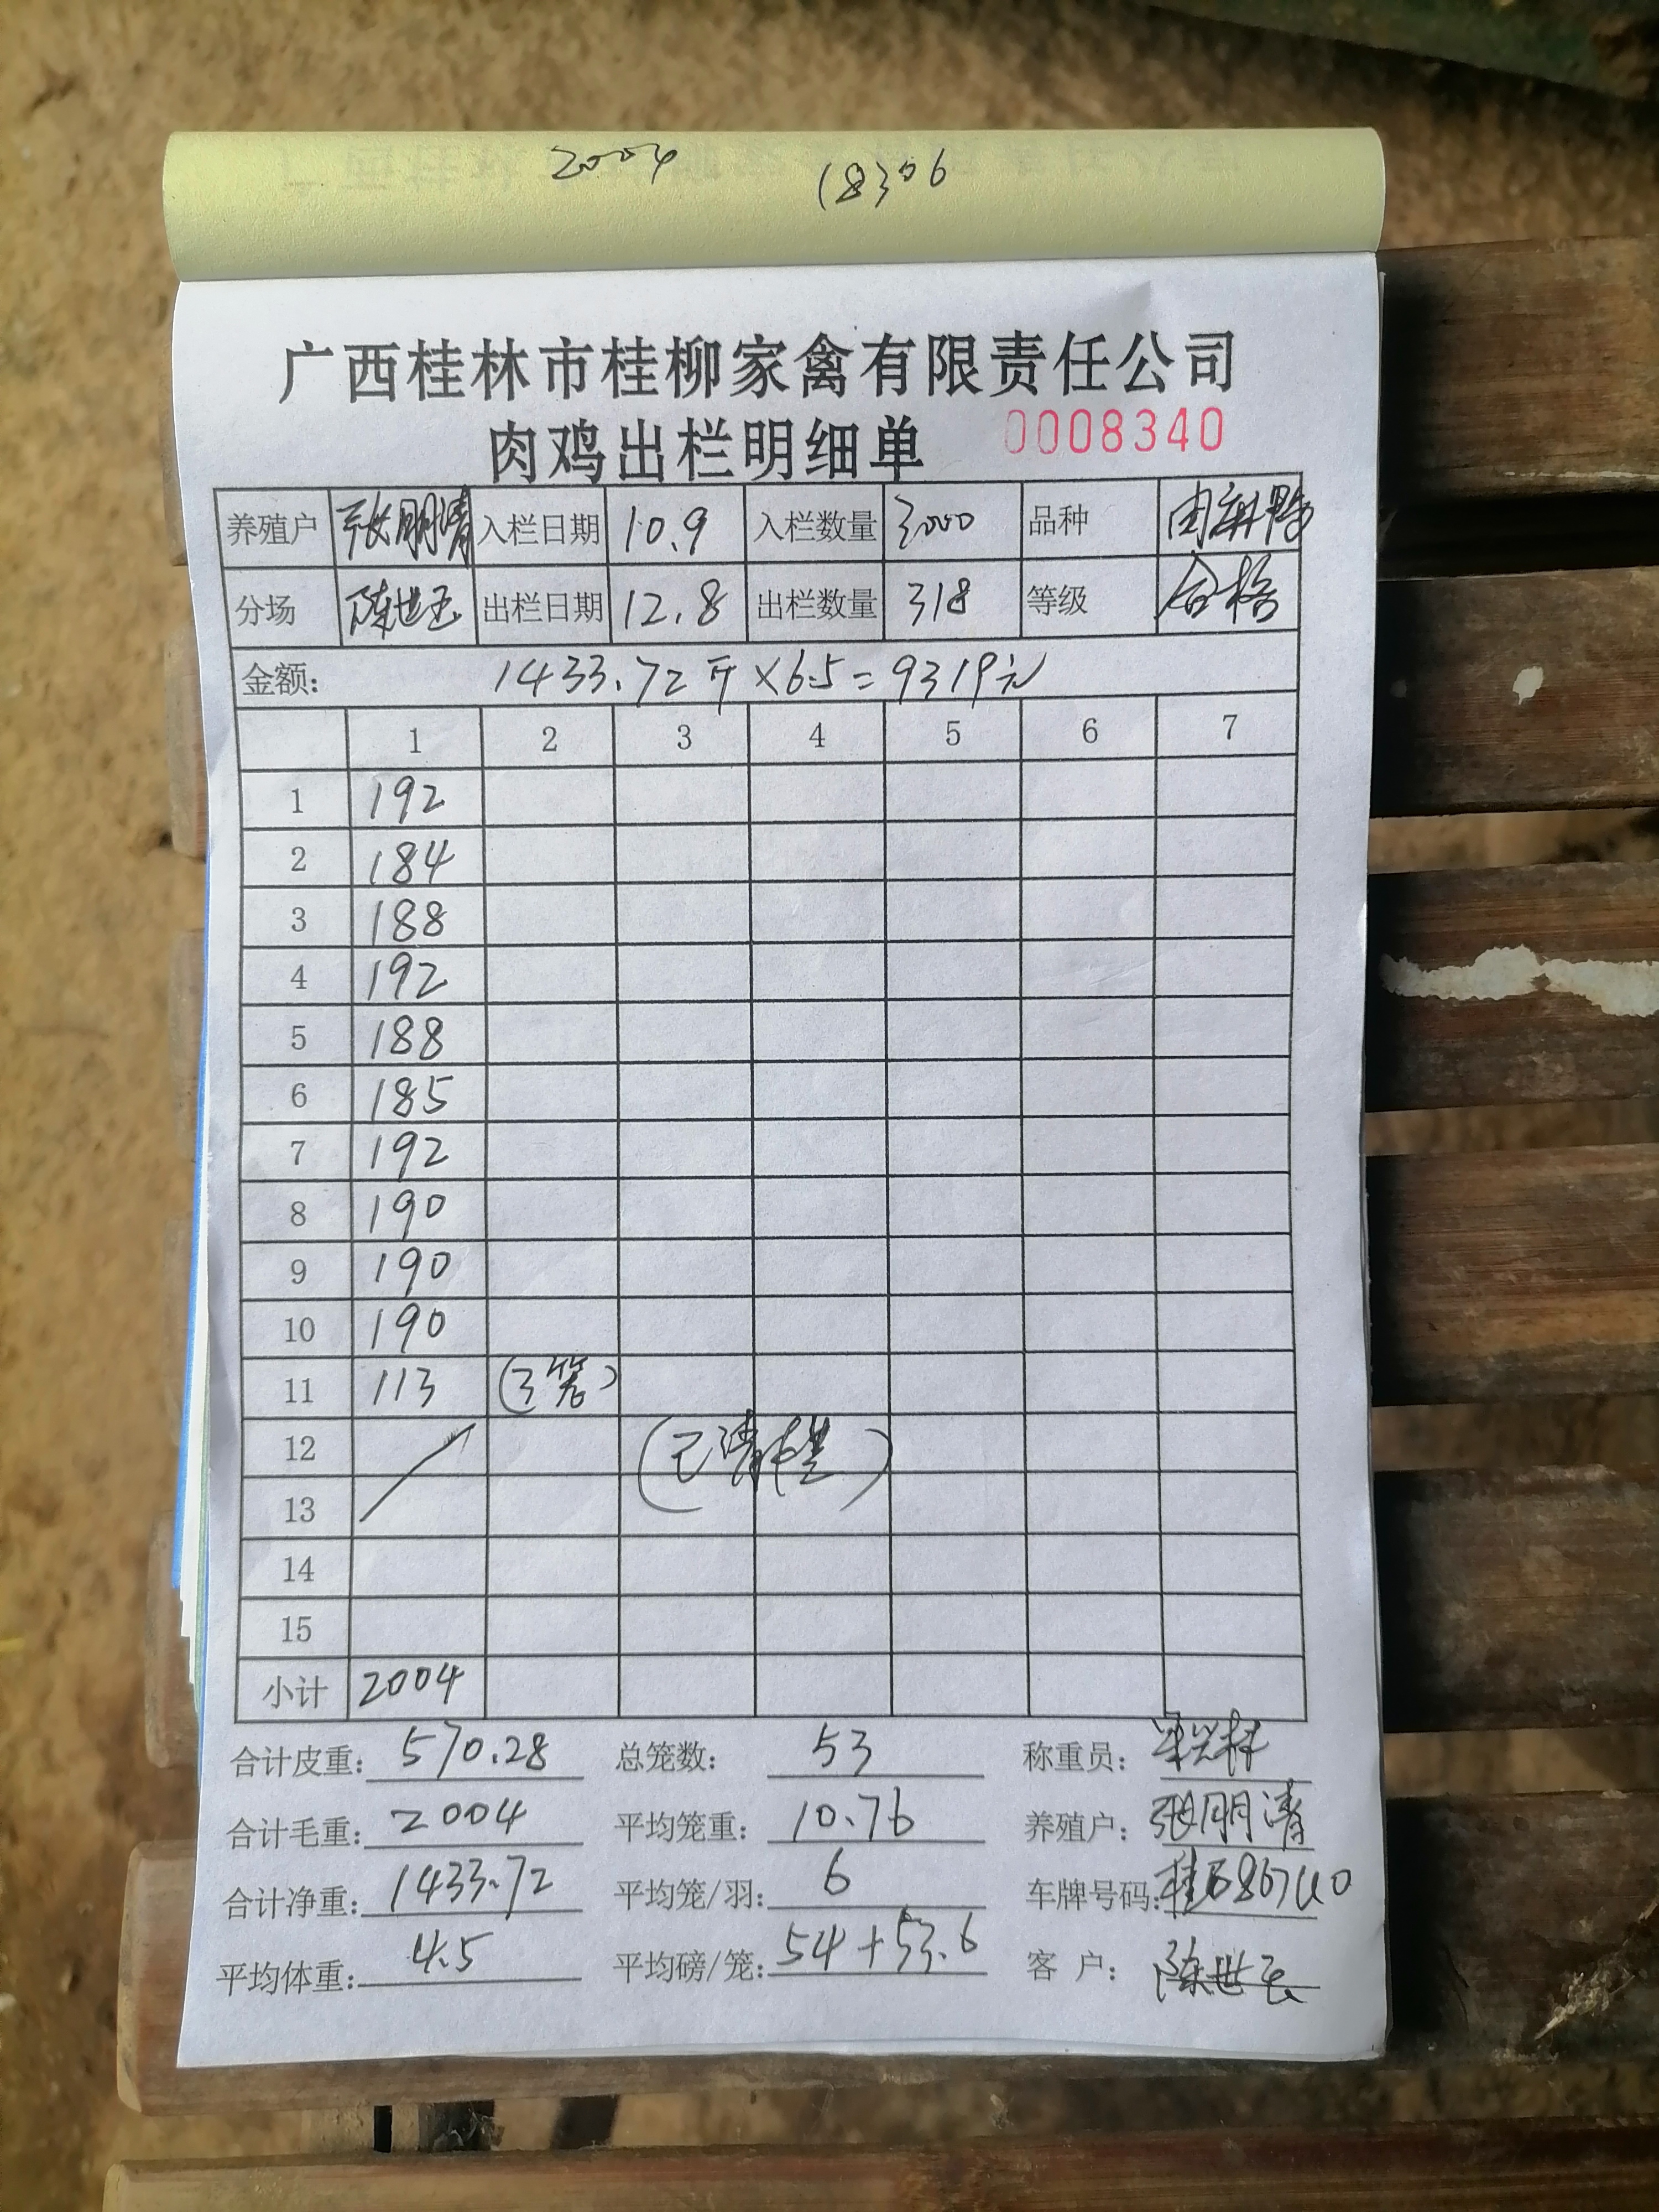 2004 18306
广西桂林市桂柳家禽有限责任公司
肉鸡出栏明细单 0008340
养殖户 张朋清 入栏日期 10.9 入栏数量 3000 品种
分场 陈世玉 出栏日期 12.8 出栏数量 318 等级 合格
金额: 1433.72斤×6.5=9319元
1 2 3 4 5 6 7
1 192
2 184
3 188
4 192
5 188
6 185
7 192
8 190
9 190
10 190
11 113 (3笼)
12 (已清栏)
13
14
15
小计 2004
合计皮重: 570.28 总笼数: 53 称重员:
合计毛重: 2004 平均笼重: 10.76 养殖户: 张朋清
合计净重: 1433.72 平均笼/羽: 6 车牌号码:
平均体重: 4.5 平均磅/笼: 54+53.6 客户: